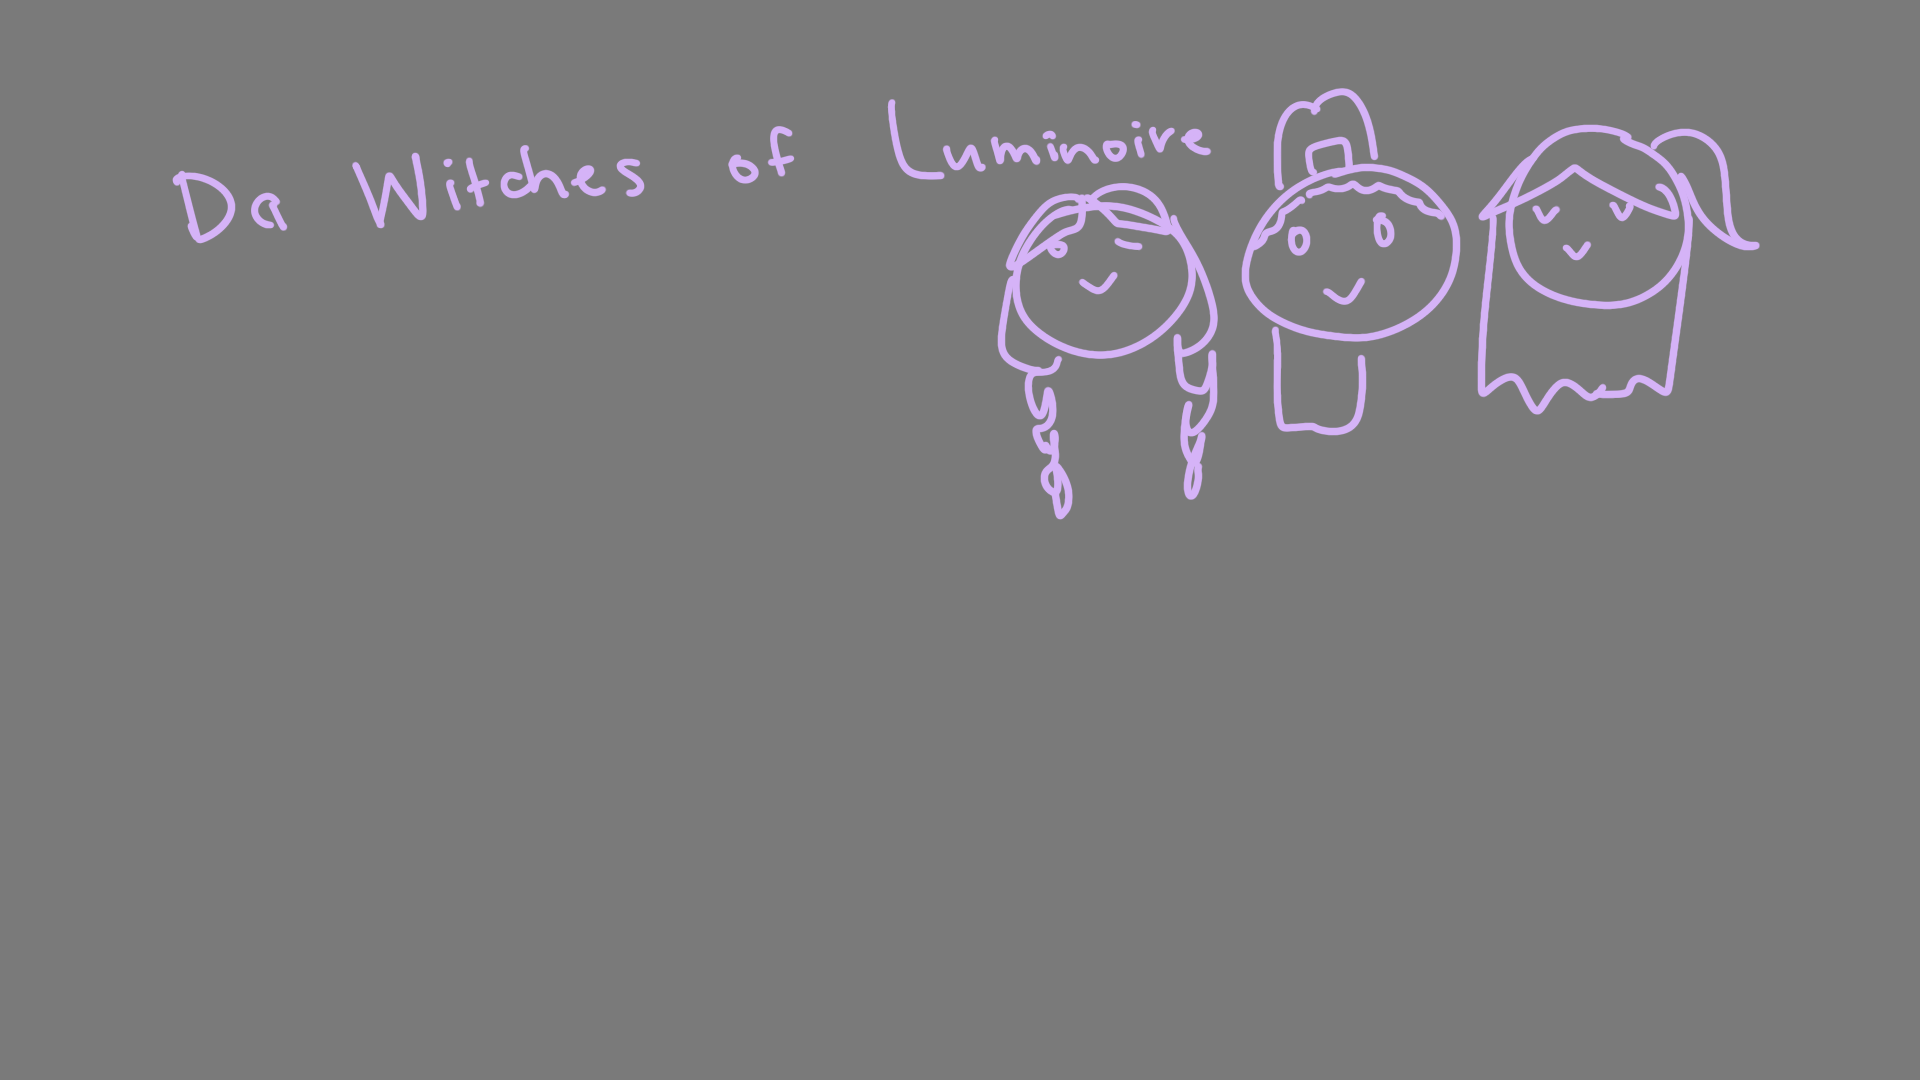 Da Witches of Luminoire